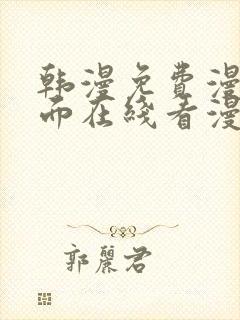 韩漫免费漫
而在线看漫
郭丽君